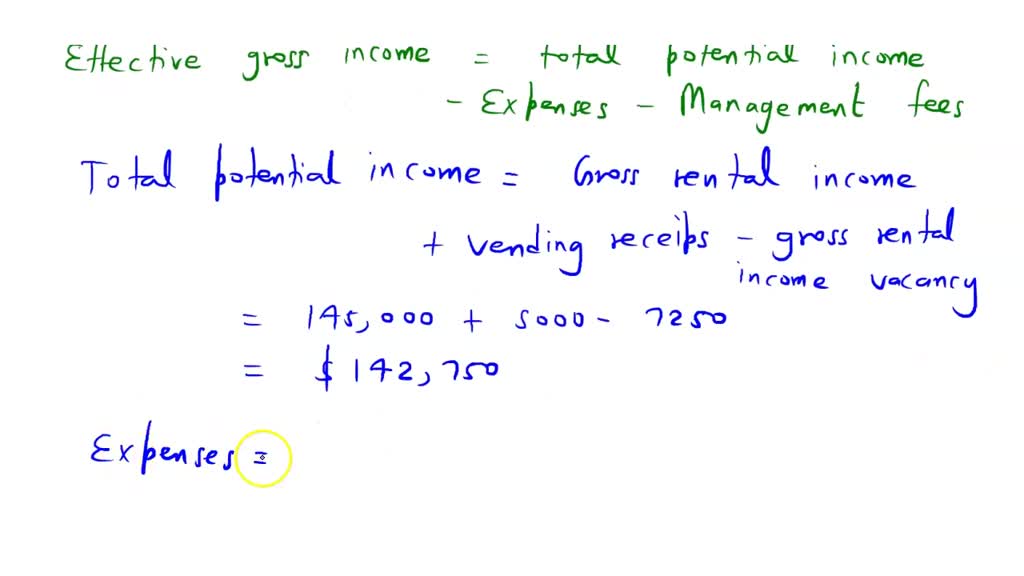 Effective gross income = total potential income
- Expenses - Management fees
Total potential income = Gross rental income
+ vending receips - gross rental
income vacancy
= 145,000 + 5000 - 7250
= $142,750
Expenses =